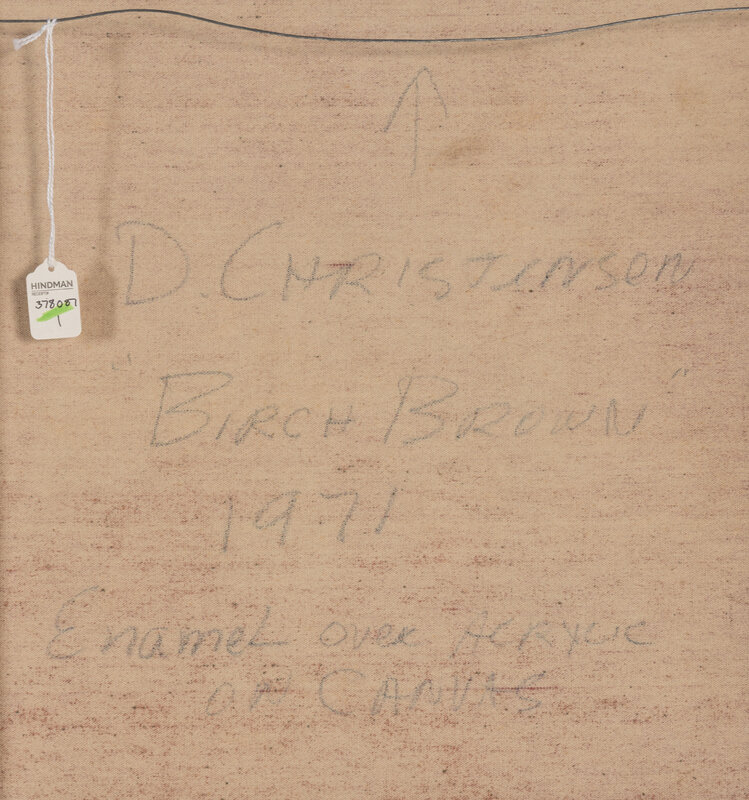 D CHRISTENSEN
HINDMAN
378087
1
"BIRCH BROWN"
1971
ENAMEL OVER ACRYLIC
ON CANVAS